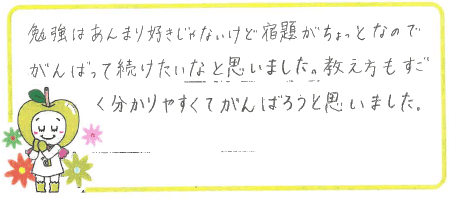 勉強はあんまり好きじゃないけど宿題がちょっとなので
がんばって続けたいなと思いました。教え方もすご
く分かりやすくてがんばろうと思いました。